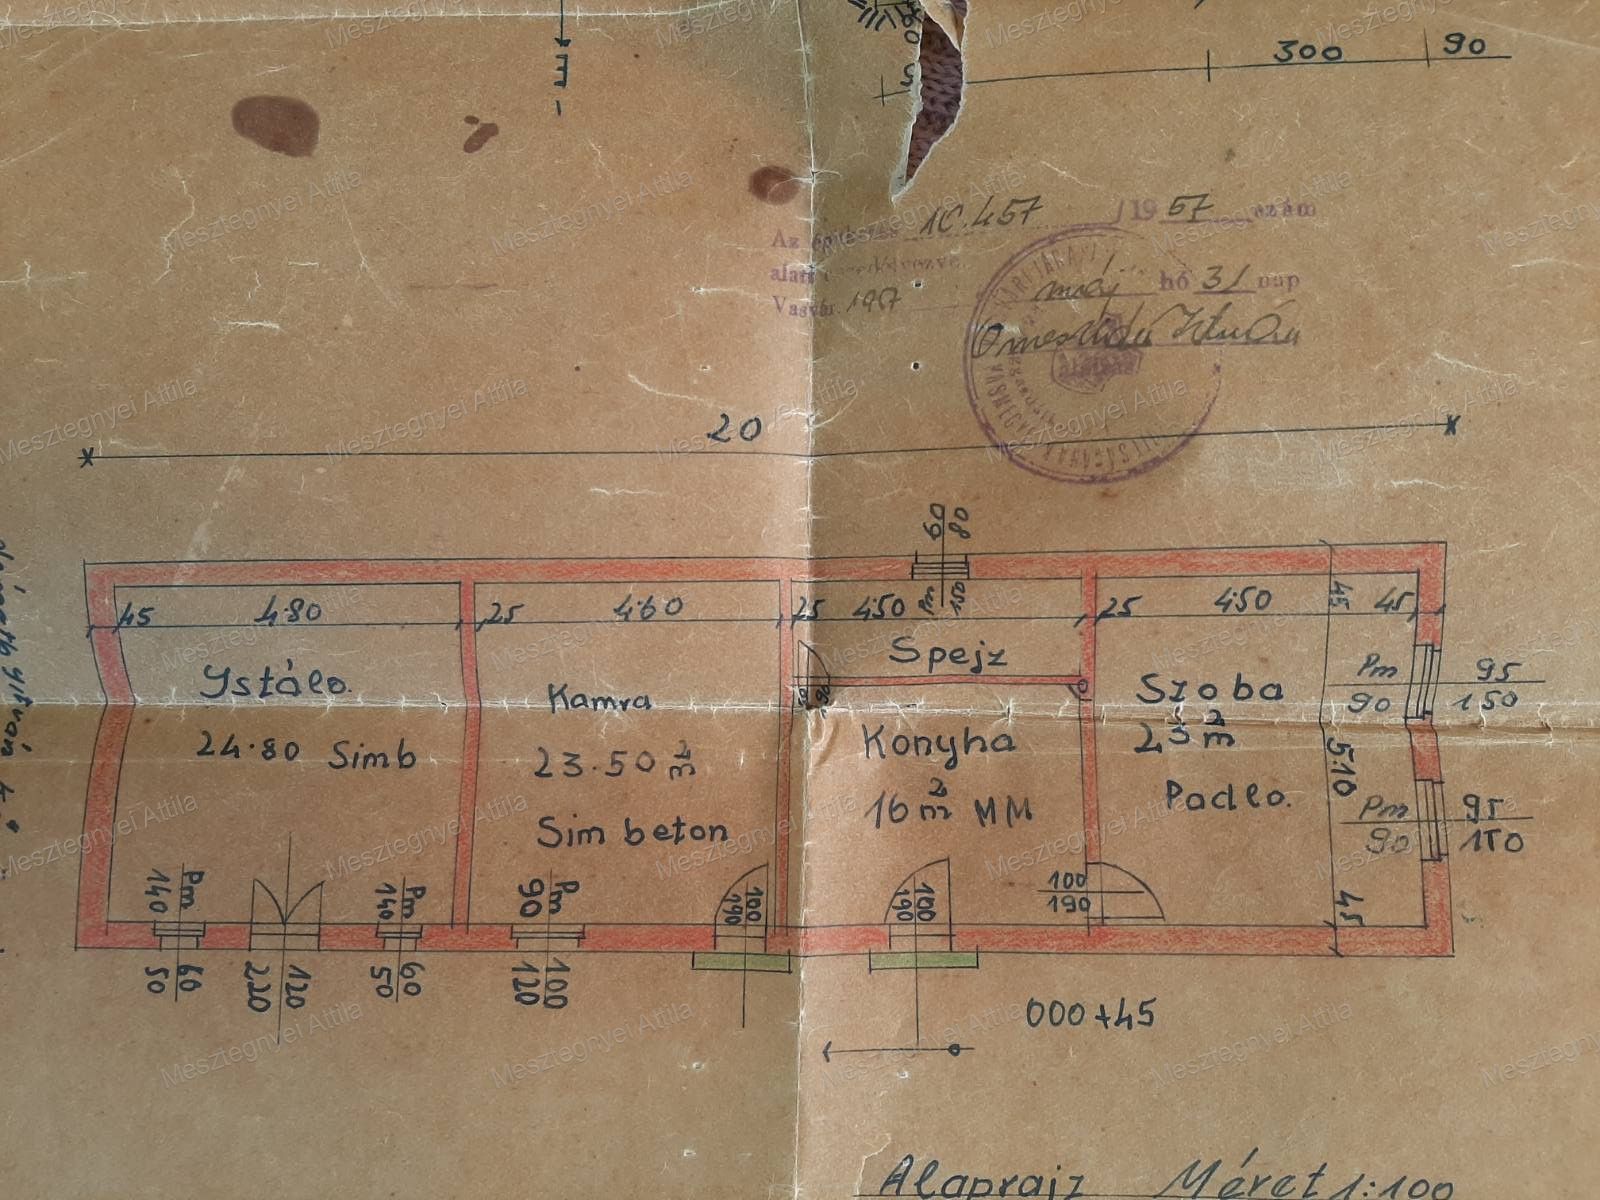 E
300
90
Az 10.457 /1957 szám
alatt
máj hó 31 nap
Vasvár. 1957
20
60
80
Pm
150
45
480
25
460
25
450
25
450
45
45
Ystálo.
24.80 Simb
Kamra
23.50 m2
Sim beton
Spejz
Konyha
16 m2 MM
Szoba
23 m2
Padlo.
Pm
90
95
150
510
Pm
90
95
150
45
Pm
140
60
50
120
220
Pm
140
60
50
Pm
90
100
120
100
190
100
190
100
190
000+45
Alaprajz Méret 1:100
Mesztegnyei Attila